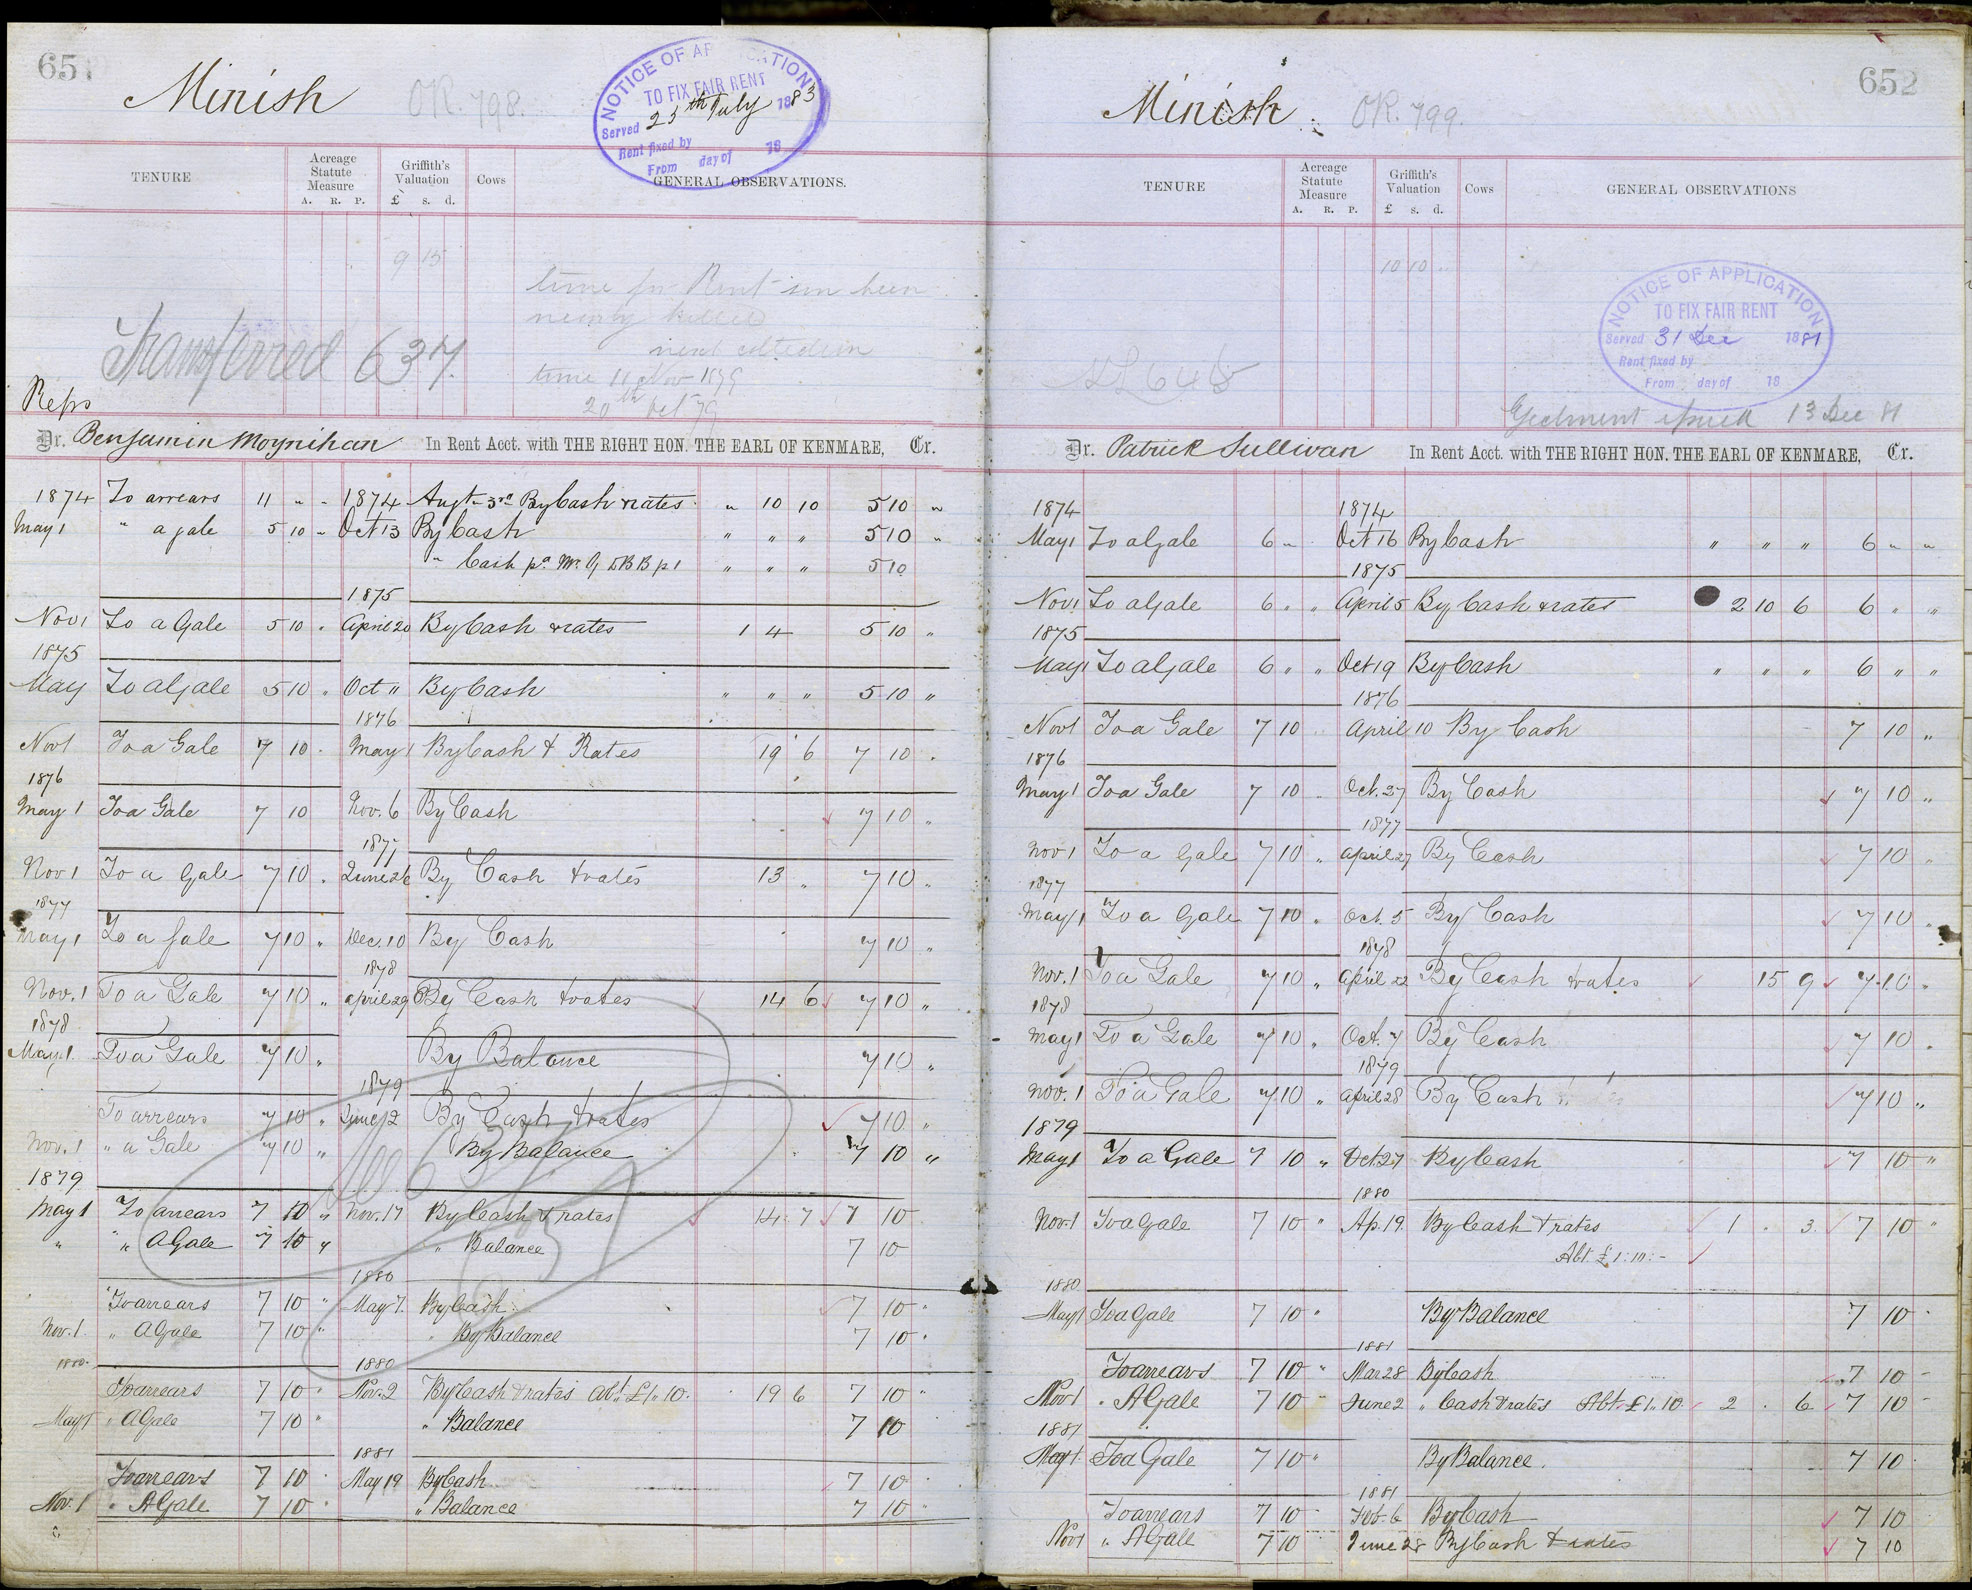 651
Minish OK. 798.
NOTICE OF APPLICATION
TO FIX FAIR RENT
Served 25th July 1883
Rent fixed by
From day of 18
TENURE Acreage Statute Measure Griffith's Valuation Cows GENERAL OBSERVATIONS.
A. R. P. £ s. d.
9 15
time for Rent son been
nearly killed
next collection
Transferred 637.
time 11 Nov 1879
20th Oct 79
Reps
Dr. Benjamin Moynihan In Rent Acct. with THE RIGHT HON. THE EARL OF KENMARE, Cr.
1874 To arrears 11 " - 1874 Augt 3rd By Cash & rates " 10 10 5 10 "
May 1 " a gale 5 10 " Oct 13 By Cash " " " 5 10 "
" Cash pd Mr. G " " " 5 10
1875
Nov 1 To a Gale 5 10 " April 20 By Cash & rates 1 4 5 10 "
1875
May To a Gale 5 10 " Oct 11 By Cash " " " 5 10 "
1876
Nov 1 To a Gale 7 10 " May 1 By Cash & Rates 19 6 7 10 "
1876
May 1 To a Gale 7 10 Nov. 6 By Cash 7 10 "
1877
Nov 1 To a Gale 7 10 " June 26 By Cash & rates 13 " 7 10 "
1877
May 1 To a Gale 7 10 " Dec. 10 By Cash 7 10 "
1878
Nov. 1 To a Gale 7 10 " April 29 By Cash & rates 14 6 7 10 "
1878
May 1. To a Gale 7 10 " By Balance 7 10 "
1879
To arrears 7 10 " June 12 By Cash & rates 7 10 "
Nov. 1 " a Gale 7 10 " By Balance 7 10 "
See 637
1879
May 1 To arrears 7 10 " Nov. 17 By Cash & rates 14 7 7 10
" " A Gale 7 10 " " Balance 7 10
1880
To arrears 7 10 " May 7. By Cash 7 10 "
Nov. 1. " A Gale 7 10 " " By Balance 7 10 "
1880. 1880
To arrears 7 10 " Nov. 2 By Cash & rates Abt. £1. 10. 19 6 7 10 "
May 1 " A Gale 7 10 " " Balance 7 10
1881
To arrears 7 10 " May 19 By Cash 7 10 "
Nov. 1 " A Gale 7 10 " " Balance 7 10 "
652
Minish. OK. 799.
TENURE Acreage Statute Measure Griffith's Valuation Cows GENERAL OBSERVATIONS
A. R. P. £ s. d.
10 10 "
NOTICE OF APPLICATION
TO FIX FAIR RENT
Served 31 Dec 1881
Rent fixed by
From day of 18
Ejectment issued 13 Dec 81
Dr. Patrick Sullivan In Rent Acct. with THE RIGHT HON. THE EARL OF KENMARE, Cr.
1874 1874
May 1 To a Gale 6 " Oct 16 By Cash " " " 6 " "
1875
Nov 1 To a Gale 6 " " April 5 By Cash & rates 2 10 6 6 " "
1875
May 1 To a Gale 6 " " Oct 19 By Cash " " " 6 " "
1876
Nov 1 To a Gale 7 10 April 10 By Cash 7 10 "
1876
May 1 To a Gale 7 10 " Oct. 27 By Cash 7 10 "
1877
Nov 1 To a Gale 7 10 " April 27 By Cash 7 10 "
1877
May 1 To a Gale 7 10 " Oct. 5 By Cash 7 10 "
1878
Nov. 1 To a Gale 7 10 " April 22 By Cash & rates 15 9 7 10 "
1878
May 1 To a Gale 7 10 " Oct. 7 By Cash 7 10 "
1879
Nov. 1 To a Gale 7 10 " April 28 By Cash 7 10 "
1879
May 1 To a Gale 7 10 " Oct 27 By Cash 7 10 "
1880
Nov. 1 To a Gale 7 10 " Ap. 19. By Cash & rates 1 . 3. 7 10 "
Abt. £1:10:-
1880
May 1 To a Gale 7 10 " By Balance 7 10 "
1881
To arrears 7 10 " Mar 28 By Cash 7 10 -
Nov 1 " A Gale 7 10 " June 2 " Cash & rates Abt. £1. 10 2 . 6 7 10 -
1881
May 1 To a Gale 7 10 " By Balance. 7 10
1881
To arrears 7 10 - Feb. 6 By Cash 7 10
Nov 1 " A Gale 7 10 June 28 By Cash & rates 7 10